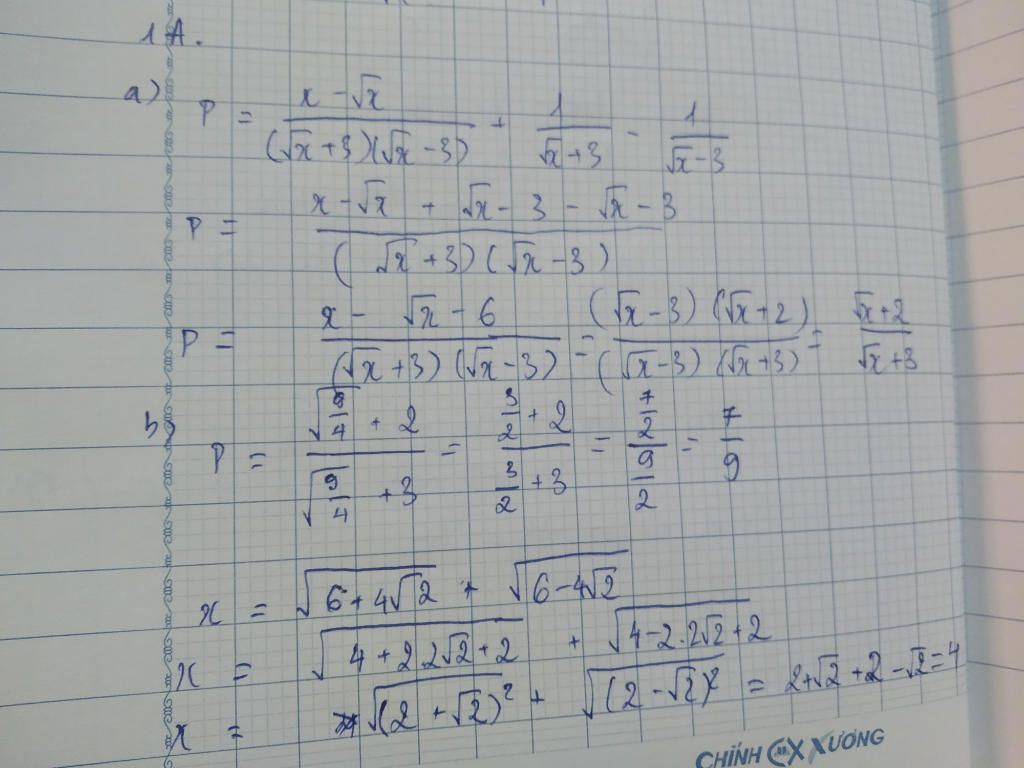 1A.
a) P = (x - √x)/((√x + 3)(√x - 3)) + 1/(√x + 3) - 1/(√x - 3)
P = (x - √x + √x - 3 - √x - 3)/((√x + 3)(√x - 3))
P = (x - √x - 6)/((√x + 3)(√x - 3)) = ((√x - 3)(√x + 2))/((√x - 3)(√x + 3)) = (√x + 2)/(√x + 3)
b, P = (√(9/4) + 2)/(√(9/4) + 3) = (3/2 + 2)/(3/2 + 3) = (7/2)/(9/2) = 7/9
x = √(6 + 4√2) + √(6 - 4√2)
x = √(4 + 2.2√2 + 2) + √(4 - 2.2√2 + 2)
x = √((2 + √2)²) + √((2 - √2)²) = 2 + √2 + 2 - √2 = 4
CHÍNH XƯƠNG